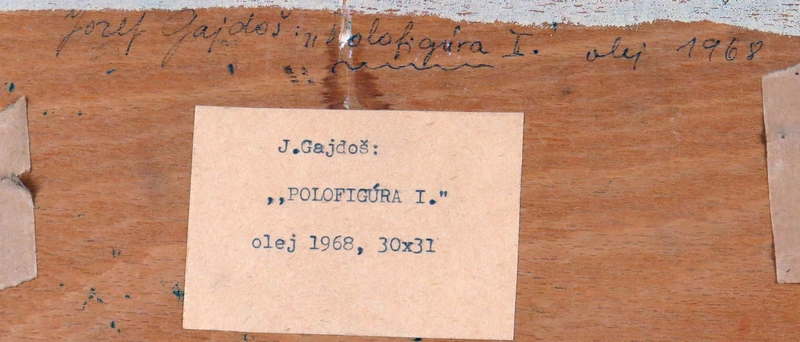 Jozef Gajdoš: „Polofigúra I." olej 1968
J.Gajdoš:
,,POLOFIGÚRA I."
olej 1968, 30x31